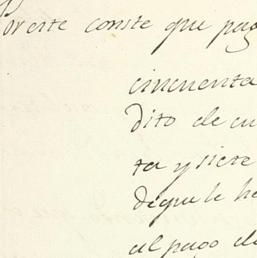 Por este conste que pag
cincuenta
dito de cu
ta y siete
de que le he
al pago de